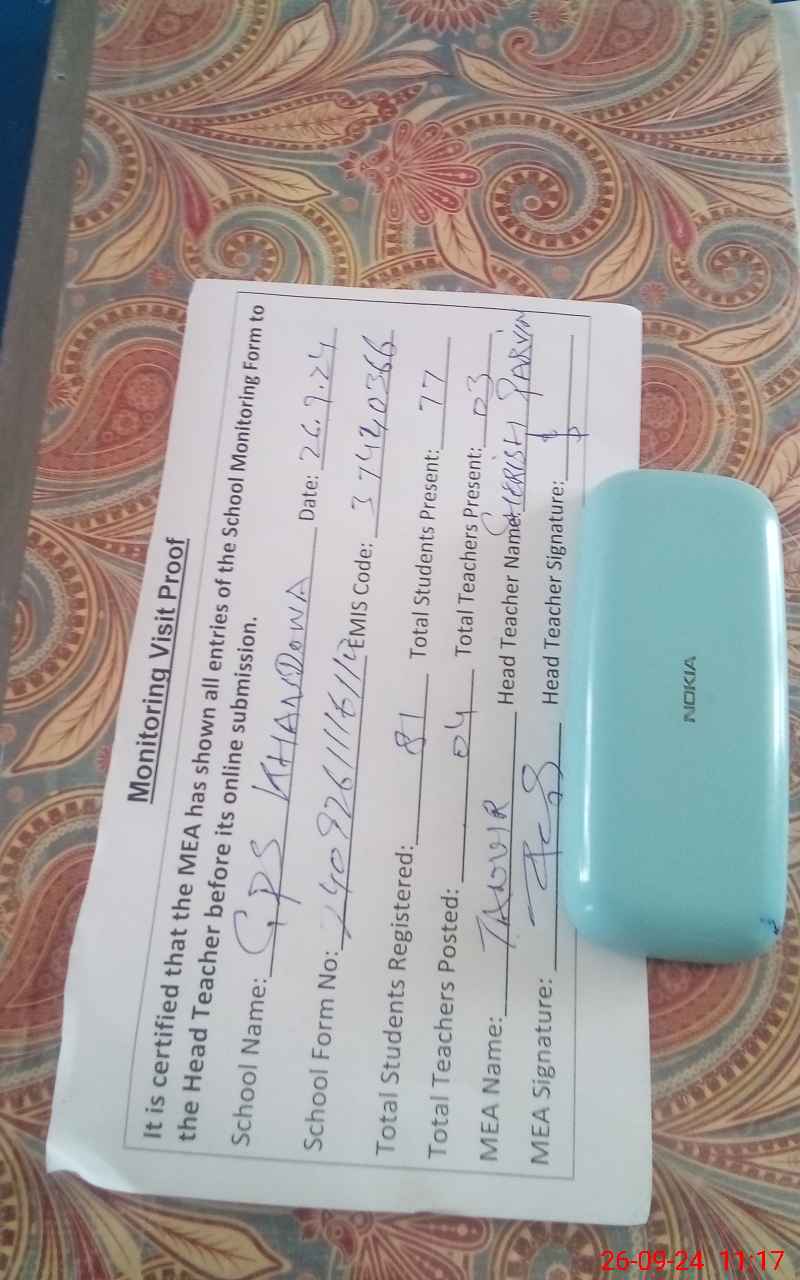 Monitoring Visit Proof
It is certified that the MEA has shown all entries of the School Monitoring Form to
the Head Teacher before its online submission.
School Name: GPS KHANDOWA Date: 26.9.24
School Form No: EMIS Code: 37420366
Total Students Registered: 81 Total Students Present: 77
Total Teachers Posted: 04 Total Teachers Present: 03
MEA Name: TANVIR Head Teacher Name: SHERISH PARVIN
MEA Signature: Head Teacher Signature:
NOKIA
26-09-24 11:17